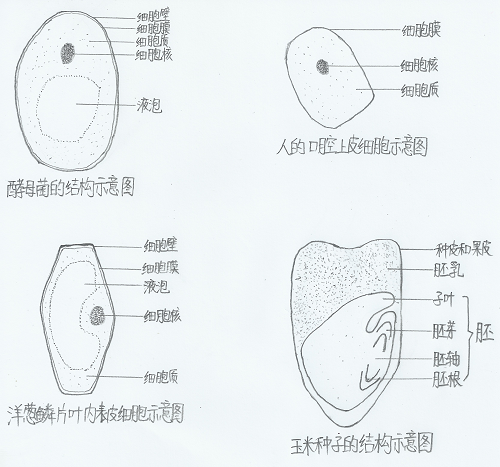 细胞壁
细胞膜
细胞质
细胞核
液泡
酵母菌的结构示意图
细胞膜
细胞核
细胞质
人的口腔上皮细胞示意图
细胞壁
细胞膜
液泡
细胞核
细胞质
洋葱鳞片叶内表皮细胞示意图
种皮和果皮
胚乳
子叶
胚芽
胚轴
胚根
胚
玉米种子的结构示意图